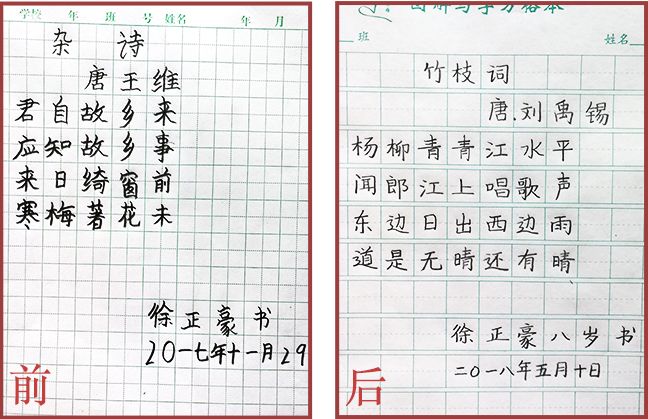 学校 年 班 号 姓名 年 月
杂 诗
唐 王 维
君 自 故 乡 来
应 知 故 乡 事
来 日 绮 窗 前
寒 梅 著 花 未
徐 正 豪 书
20一七年十一月29
前
班 姓名
竹 枝 词
唐.刘 禹 锡
杨 柳 青 青 江 水 平
闻 郎 江 上 唱 歌 声
东 边 日 出 西 边 雨
道 是 无 晴 还 有 晴
徐 正 豪 八 岁 书
二〇一八年五月十日
后